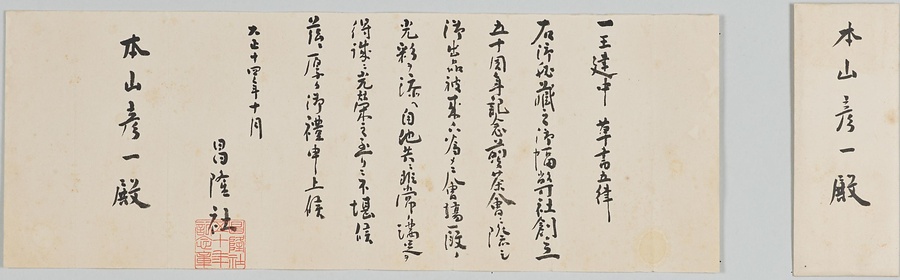 一王建中 草書五律
右御秘藏之御幅弊社創立
五十周年記念煎茶會ニ際シ
御出品被成下為メニ會場一段ノ
光彩ヲ添ヘ自他共ニ非常ノ満足ヲ
得誠ニ光栄之至リニ不堪候
茲ニ厚ク御禮申上候
大正十四年十月
昌隆社
本山彦一殿
本山彦一殿